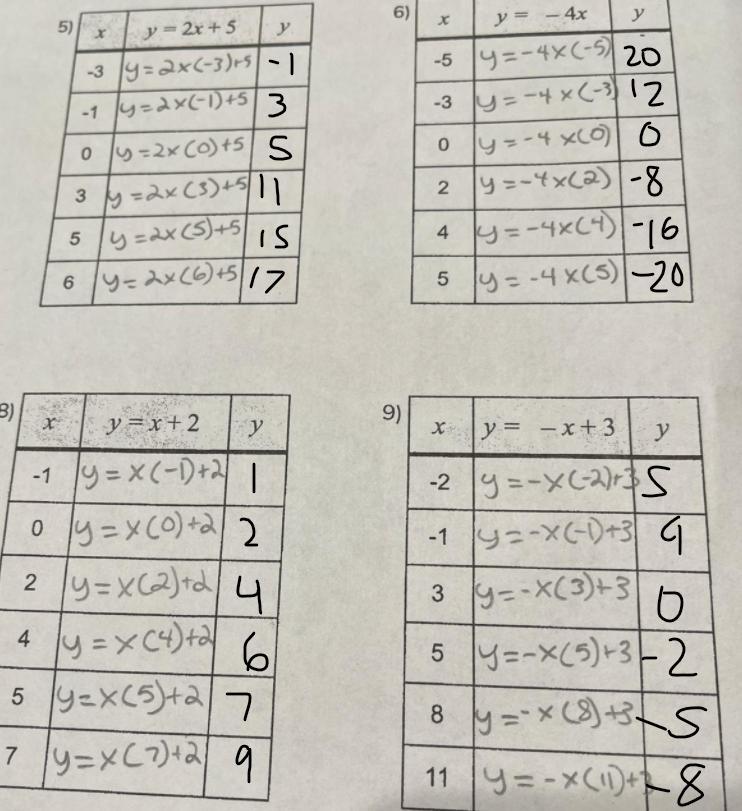 5) x y = 2x + 5 y
-3 y=2x(-3)+5 -1
-1 y=2x(-1)+5 3
0 y=2x(0)+5 5
3 y=2x(3)+5 11
5 y=2x(5)+5 15
6 y=2x(6)+5 17
6) x y = - 4x y
-5 y=-4x(-5) 20
-3 y=-4x(-3) 12
0 y=-4x(0) 0
2 y=-4x(2) -8
4 y=-4x(4) -16
5 y=-4x(5) -20
8) x y = x + 2 y
-1 y=x(-1)+2 1
0 y=x(0)+2 2
2 y=x(2)+2 4
4 y=x(4)+2 6
5 y=x(5)+2 7
7 y=x(7)+2 9
9) x y = - x + 3 y
-2 y=-x(-2)+3 5
-1 y=-x(-1)+3 9
3 y=-x(3)+3 0
5 y=-x(5)+3 -2
8 y=-x(8)+3 -5
11 y=-x(11)+3 -8